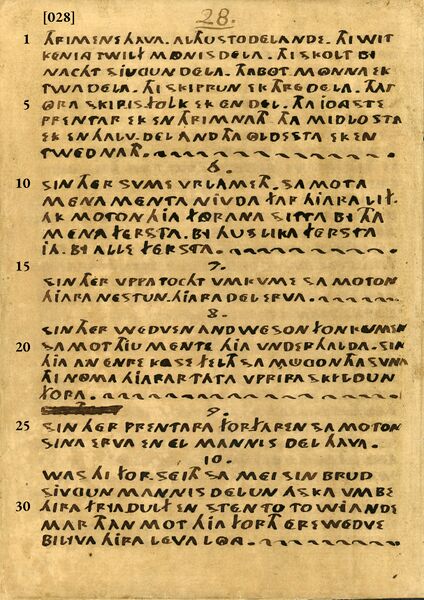 [028]
28.
1 THRIMENS HAVA. AL HUSTO DEL ANDE. THI WIT
KENIG TWILIF MONNIS DELA. THI SKOLT BI
NACHT SIUGUN DELA. THA BOT MONNA EK
TWA DELA. THI SKIPRUN EK THRE DELA. THAT
5 ORA SKIPIS FOLK EK EN DEL. THA JONGSTE
PRENTAR EK EN THRIMNATH. THA MIDLOSTA
EK EN HALV. DEL AND THA OLDSSTA EK EN
TWEDNATH.
6.
10 SIN THER SVME VRLAMETH. SA MOT A
MENA MENTA NIVDA FAR HIARA LIF.
AK MOTON HIA FORANA SITTA BI THA
MENA FERSTA. BI HUSLIKA FERSTA
IA. BI ALLE FERSTA.
15 7.
SIN THER VPPA TOCHT VMKVME SA MOTON
HIARA NESTUN. HIARA DEL ERVA.
8.
SIN THER WEDVEN AND WESON FON KVMEN
20 SA MOT THIU MENTE HIA VNDERHALDA. SIN
HIA AN ENRE KASE FELTH. SA MUGON THA SVNA
THI NOMA HIARAR TATA VPPIRA SKILDUN
FORA.
9.
25 SIN THER PRENTARA FORFAREN SA MOTON
SINA ERVA EN EL MANNIS DEL HAVA.
10.
WAS HI FORSEITH SA MEI SIN BRUD
SIUGUN MANNIS DELUN ASKA VMBE
30 HIRA FRIADULF EN STEN TO TO WIANDE
MAR THAN MOT HIA FORTH ERE WEDVE
BILIVA HIRA LEVA LOA.